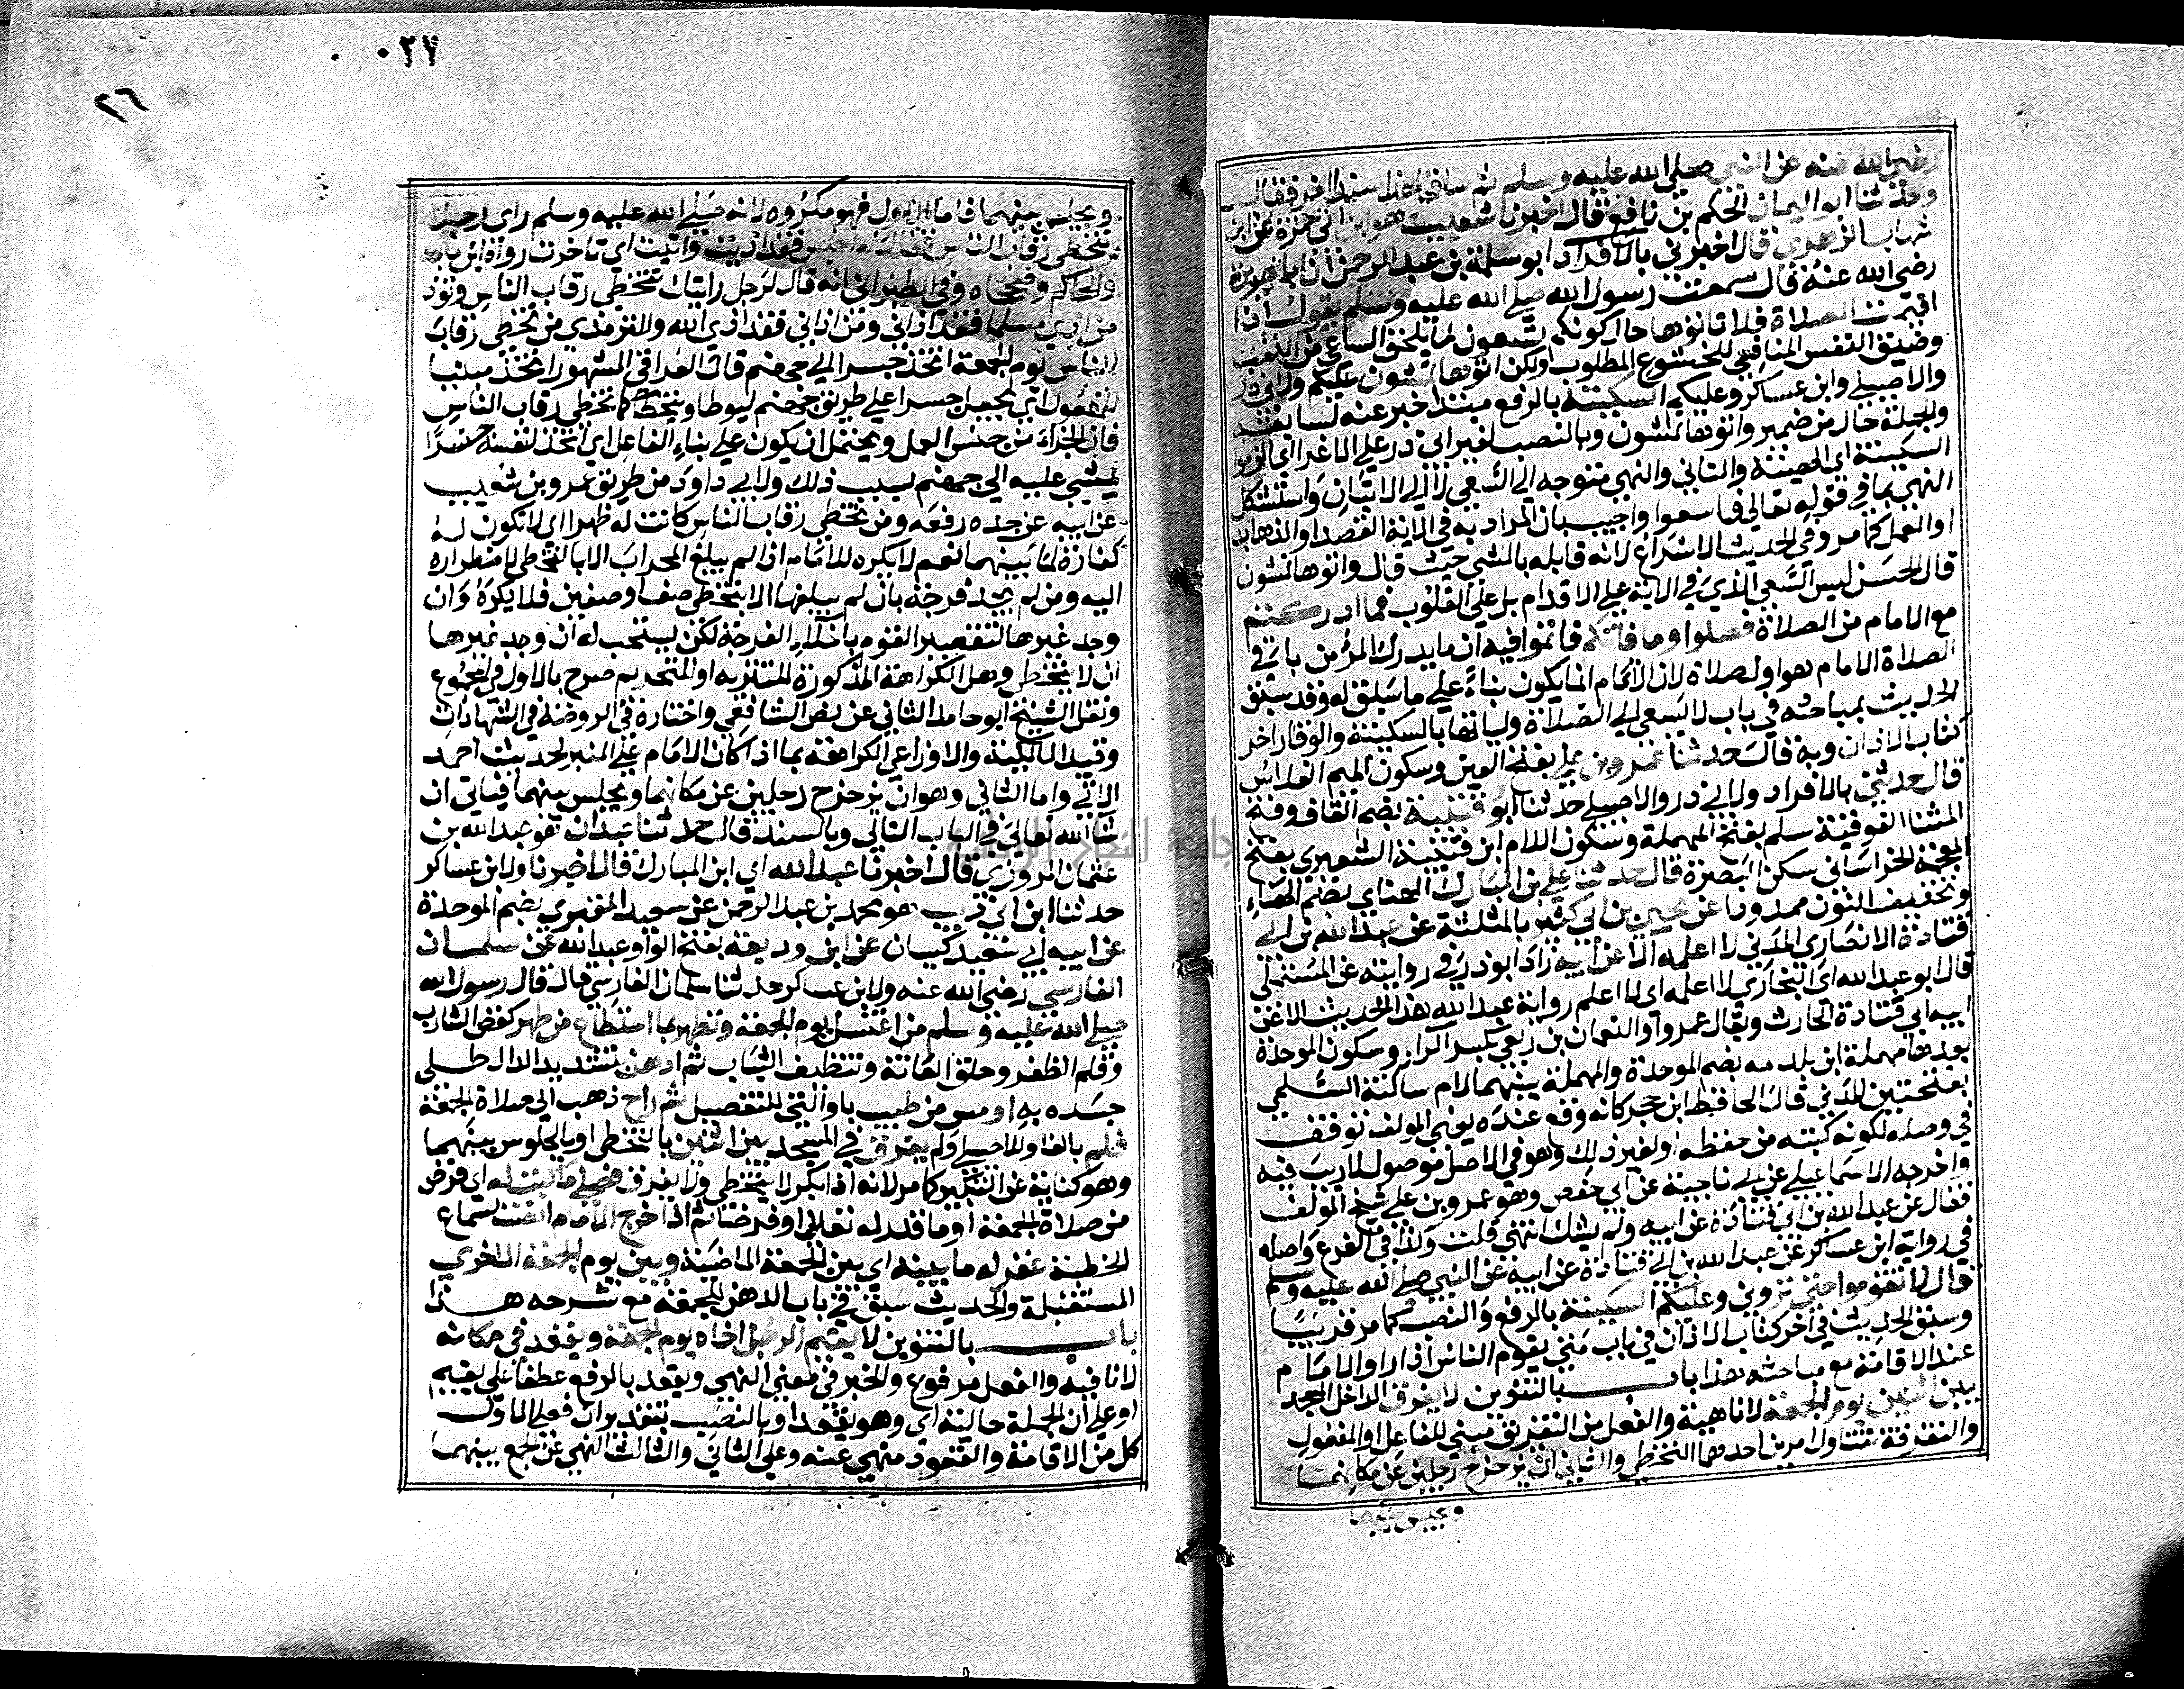 رضي الله عنه عن النبي صلى الله عليه وسلم ثم ساق لهذا سندا اخر فقال
وحدثنا ابو اليمان الحكم بن نافع قال اخبرنا شعيب هو ابن ابي حمزة عن ابن
شهاب الزهري قال اخبرني بالافراد ابو سلمة بن عبد الرحمن ان ابا هريرة
رضي الله عنه قال سمعت رسول الله صلى الله عليه وسلم يقول اذا
اقيمت الصلاة فلا تاتوها حال كونكم تسعون لما يلحق الساعي من التعب
وضيق النفس المنافي للخشوع المطلوب ولكن ائتوها تمشون عليكم ولابي ذر
والاصيلي وابن عساكر وعليكم السكينة بالرفع مبتدا خبر عنه لسابقه
والجملة حال من ضمير واتوها تمشون وبالنصب لغير ابي ذر على الاغرا اي الزموا
السكينة اي الهينة والتاني والنهي متوجه الى السعي لا الى الاتيان واستشكل
النهي بما في قوله تعالى فاسعوا واجيب بان المراد به في الاية القصد او الذهاب
او العمل كما مر وفي الحديث الاسراع لانه قابله بالمشي حيث قال واتوها تمشون
قال الحسن ليس السعي الذي في الاية على الاقدام بل على القلوب فما ادركتم
مع الامام من الصلاة فصلوا وما فاتكم فاتموا فيه ان ما يدرك المرؤ من باقي
الصلاة الامام هو اول صلاة لان الاتمام انما يكون بناء على ما سبق له وقد سبق
الحديث بمباحثه في باب لا يسعى الى الصلاة ولياتها بالسكينة والوقار اخر
كتاب الاذان وبه قال حدثنا عمرو بن علي بفتح العين وسكون الميم الفلاس
قال حدثني بالافراد ولابي ذر والاصيلي حدثنا ابو قتيبة بضم القاف وفتح
المثناة الفوقية سلم بفتح المهملة وسكون اللام ابن قتيبة الشعيري بفتح
المعجمة الخراساني سكن البصرة قال حدثنا علي بن المبارك الهناي بضم الهاء
وتخفيف النون ممدودا عن يحيى بن ابي كثير بالمثلثة عن عبد الله بن ابي
قتادة الانصاري المدني لا اعلمه الا عن ابيه زاد ابو ذر في روايته عن المستملي
قال ابو عبد الله اي البخاري لا اعلمه اي لا اعلم رواية عبد الله هذا الحديث الا عن
ابيه ابي قتادة الحارث ويقال عمرو او النعمان بن ربعي بكسر الراء وسكون الموحدة
بعدها مهملة ابن بلدمه بضم الموحدة والمهملة بينهما لام ساكنة السلمي
بفتحتين المدني قال الحافظ ابن حجر كانه وقع عنده يعني المولف توقف
في وصله لكونه كتبه من حفظه او لغير ذلك وهو في الاصل موصول لا ريب فيه
واخرجه الاسماعيلي عن ابي ناجية عن ابي حفص وهو عمرو بن علي شيخ المولف
فقال عن عبد الله بن ابي قتادة عن ابيه ولم يشك انتهى قلت وكذا في الفرع واصله
في رواية ابن عساكر عن عبد الله بن ابي قتادة عن ابيه عن النبي صلى الله عليه وسلم
قال لا تقوموا حتى تروني وعليكم السكينة بالرفع والنصب كما مر قريبا
وسبق الحديث في اخر كتاب الاذان في باب متى يقوم الناس اذا راوا الامام
عند الاقامة مع مباحثه هذا باب بالتنوين لا يفرق الداخل المسجد
بين اثنين يوم الجمعة لا ناهية والفعل من التفريق مبني للفاعل او المفعول
والتفرقة تتناول امرين احدهما التخطي والثاني ان يزحزح رجلين عن مكانهما
ويجلس بينهما
٠٢٧
٢٦
ويجلس بينهما فاما الاول فهو مكروه لانه صلى الله عليه وسلم راى رجلا
يتخطى رقاب الناس فقال له اجلس فقد اذيت وانيت اي تاخرت رواه ابن ماجه
والحاكم وصححاه وفي الطبراني انه قال لرجل رايتك تتخطى رقاب الناس وتوذ
من اذى مسلما فقد اذاني ومن اذاني فقد اذى الله وللترمذي من تخطى رقاب
الناس يوم الجمعة اتخذ جسرا الى جهنم قال العراقي المشهور اتخذ مبنيا
للمفعول اي يجعل جسرا على طريق جهنم ليوطا ويتخطى كما تخطى رقاب الناس
فان الجزاء من جنس العمل ويحتمل ان يكون على بناء الفاعل اي اتخذ لنفسه جسرا
يمشي عليه الى جهنم بسبب ذلك ولابي داود من طريق عمرو بن شعيب
عن ابيه عن جده رفعه ومن تخطى رقاب الناس كانت له ظهرا اي لا تكون له
كفارة لما بينهما نعم لا يكره للامام اذا لم يبلغ المحراب الا بالتخطي لاضطراره
اليه ومن لم يجد فرجة بان لم يبلغها الا بتخطي صف او صفين فلا يكره وان
وجد غيرها لتقصير القوم باخلاء الفرجة لكن يستحب له ان وجد غيرها
ان لا يتخطى وهل الكراهة المذكورة للتنزيه او للتحريم صرح بالاول في المجموع
ونقل الشيخ ابو حامد الثاني عن نص الشافعي واختاره في الروضة في الشهادات
وقيد المالكية والاوزاعي الكراهة بما اذا كان الامام على المنبر لحديث احمد
الاتي واما الثاني وهو ان يزحزح رجلين عن مكانهما ويجلس بينهما فياتي ان
شا الله تعالى في الباب التالي وبالسند قال حدثنا عبدان هو عبد الله بن
عثمان المروزي قال اخبرنا عبد الله اي ابن المبارك قال اخبرنا ولابن عساكر
حدثنا ابن ابي ذيب هو محمد بن عبد الرحمن عن سعيد المقبري بضم الموحدة
عن ابيه ابي سعيد كيسان عن ابن وديعة بفتح الواو عبد الله عن سلمان
الفارسي رضي الله عنه ولابن عساكر حدثنا سلمان الفارسي قال قال رسول الله
صلى الله عليه وسلم من اغتسل يوم الجمعة وتطهر بما استطاع من طهر كقص الشارب
وقلم الظفر وحلق العانة وتنظيف الثياب ثم ادهن بتشديد الدال طلى
جسده به او مس من طيب باو التي للتفصيل ثم راح ذهب الى صلاة الجمعة
فلم بالفا وللاصيلي ولم يفرق في المسجد بين اثنين بالتخطي او بالجلوس بينهما
وهو كناية عن التبكير كما مر لانه اذا بكر لا يتخطى ولا يفرق فصلى ما كتب له اي فرض
من صلاة الجمعة او ما قدر له نفلا او فرضا ثم اذا خرج الامام انصت لسماع
الخطبة غفر له ما بينه اي بين الجمعة الماضية وبين يوم الجمعة الاخرى
المستقبلة والحديث سبق في باب الدهن للجمعة مع شرحه هذا
باب بالتنوين لا يقيم الرجل اخاه يوم الجمعة ويقعد في مكانه
لا نافية والفعل مرفوع والخبر في معنى النهي ويقعد بالرفع عطفا على يقيم
او على ان الجملة حالية اي وهو يقعد او بالنصب بتقدير ان فعلى الاول
كل من الاقامة والقعود منهي عنه وعلى الثاني والثالث النهي عن الجمع بينهما